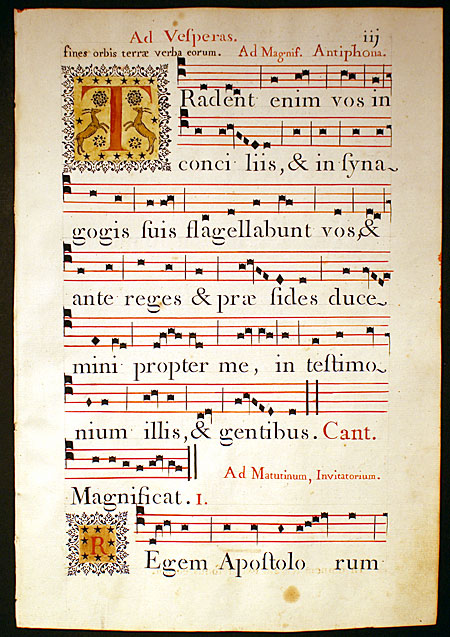 Ad Veſperas. iij
fines orbis terræ verba eorum. Ad Magnif. Antiphona.
TRadent enim vos in
conci liis, & in ſyna-
gogis ſuis flagellabunt vos, &
ante reges & præ ſides duce-
mini propter me, in teſtimo-
nium illis, & gentibus. Cant.
Ad Matutinum, Invitatorium.
Magnificat. 1.
REgem Apoſtolo rum